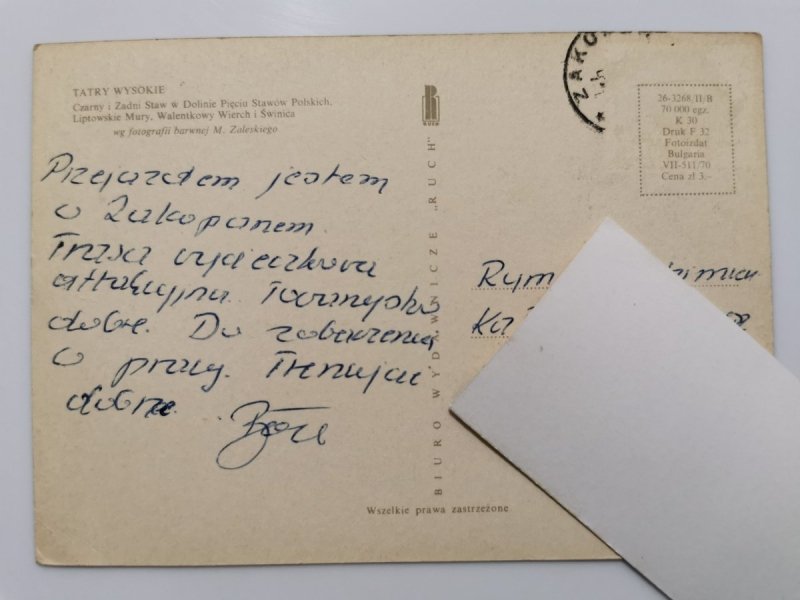 TATRY WYSOKIE
Czarny i Zadni Staw w Dolinie Pięciu Stawów Polskich,
Liptowskie Mury, Walentkowy Wierch i Świnica
wg fotografii barwnej M. Zaleskiego
Przejazdem jestem
w Zakopanem.
Trasa wycieczkowa
attrakcyjna. Towarzystwo
dobre. Do zobaczenia
w pracy. Trenujcie
dobrze.
RUCH
BIURO WYDAWNICZE „RUCH”
ZAKO
26-3268/II/B
70 000 egz.
K 30
Druk F 32
Fotoizdat
Bulgaria
VII-511/70
Cena zł 3.-
Wszelkie prawa zastrzeżone